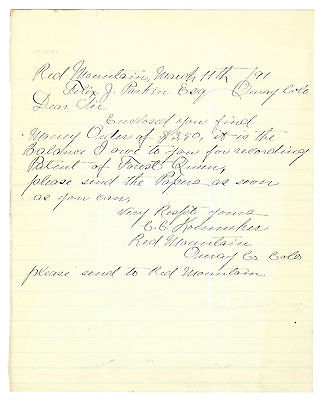 Red Mountain, March 11th /91
Felix J. Parkin Esq Ouray Colo
Dear Sir
Enclosed you find
Money Order of $2.50, it is the
Balance I owe to you for recording
Patent of Forest Queen,
please send the Papers as soon
as you can,
Very Respt yours
C. C.
Red Mountain
Ouray Co Colo
please send to Red Mountain